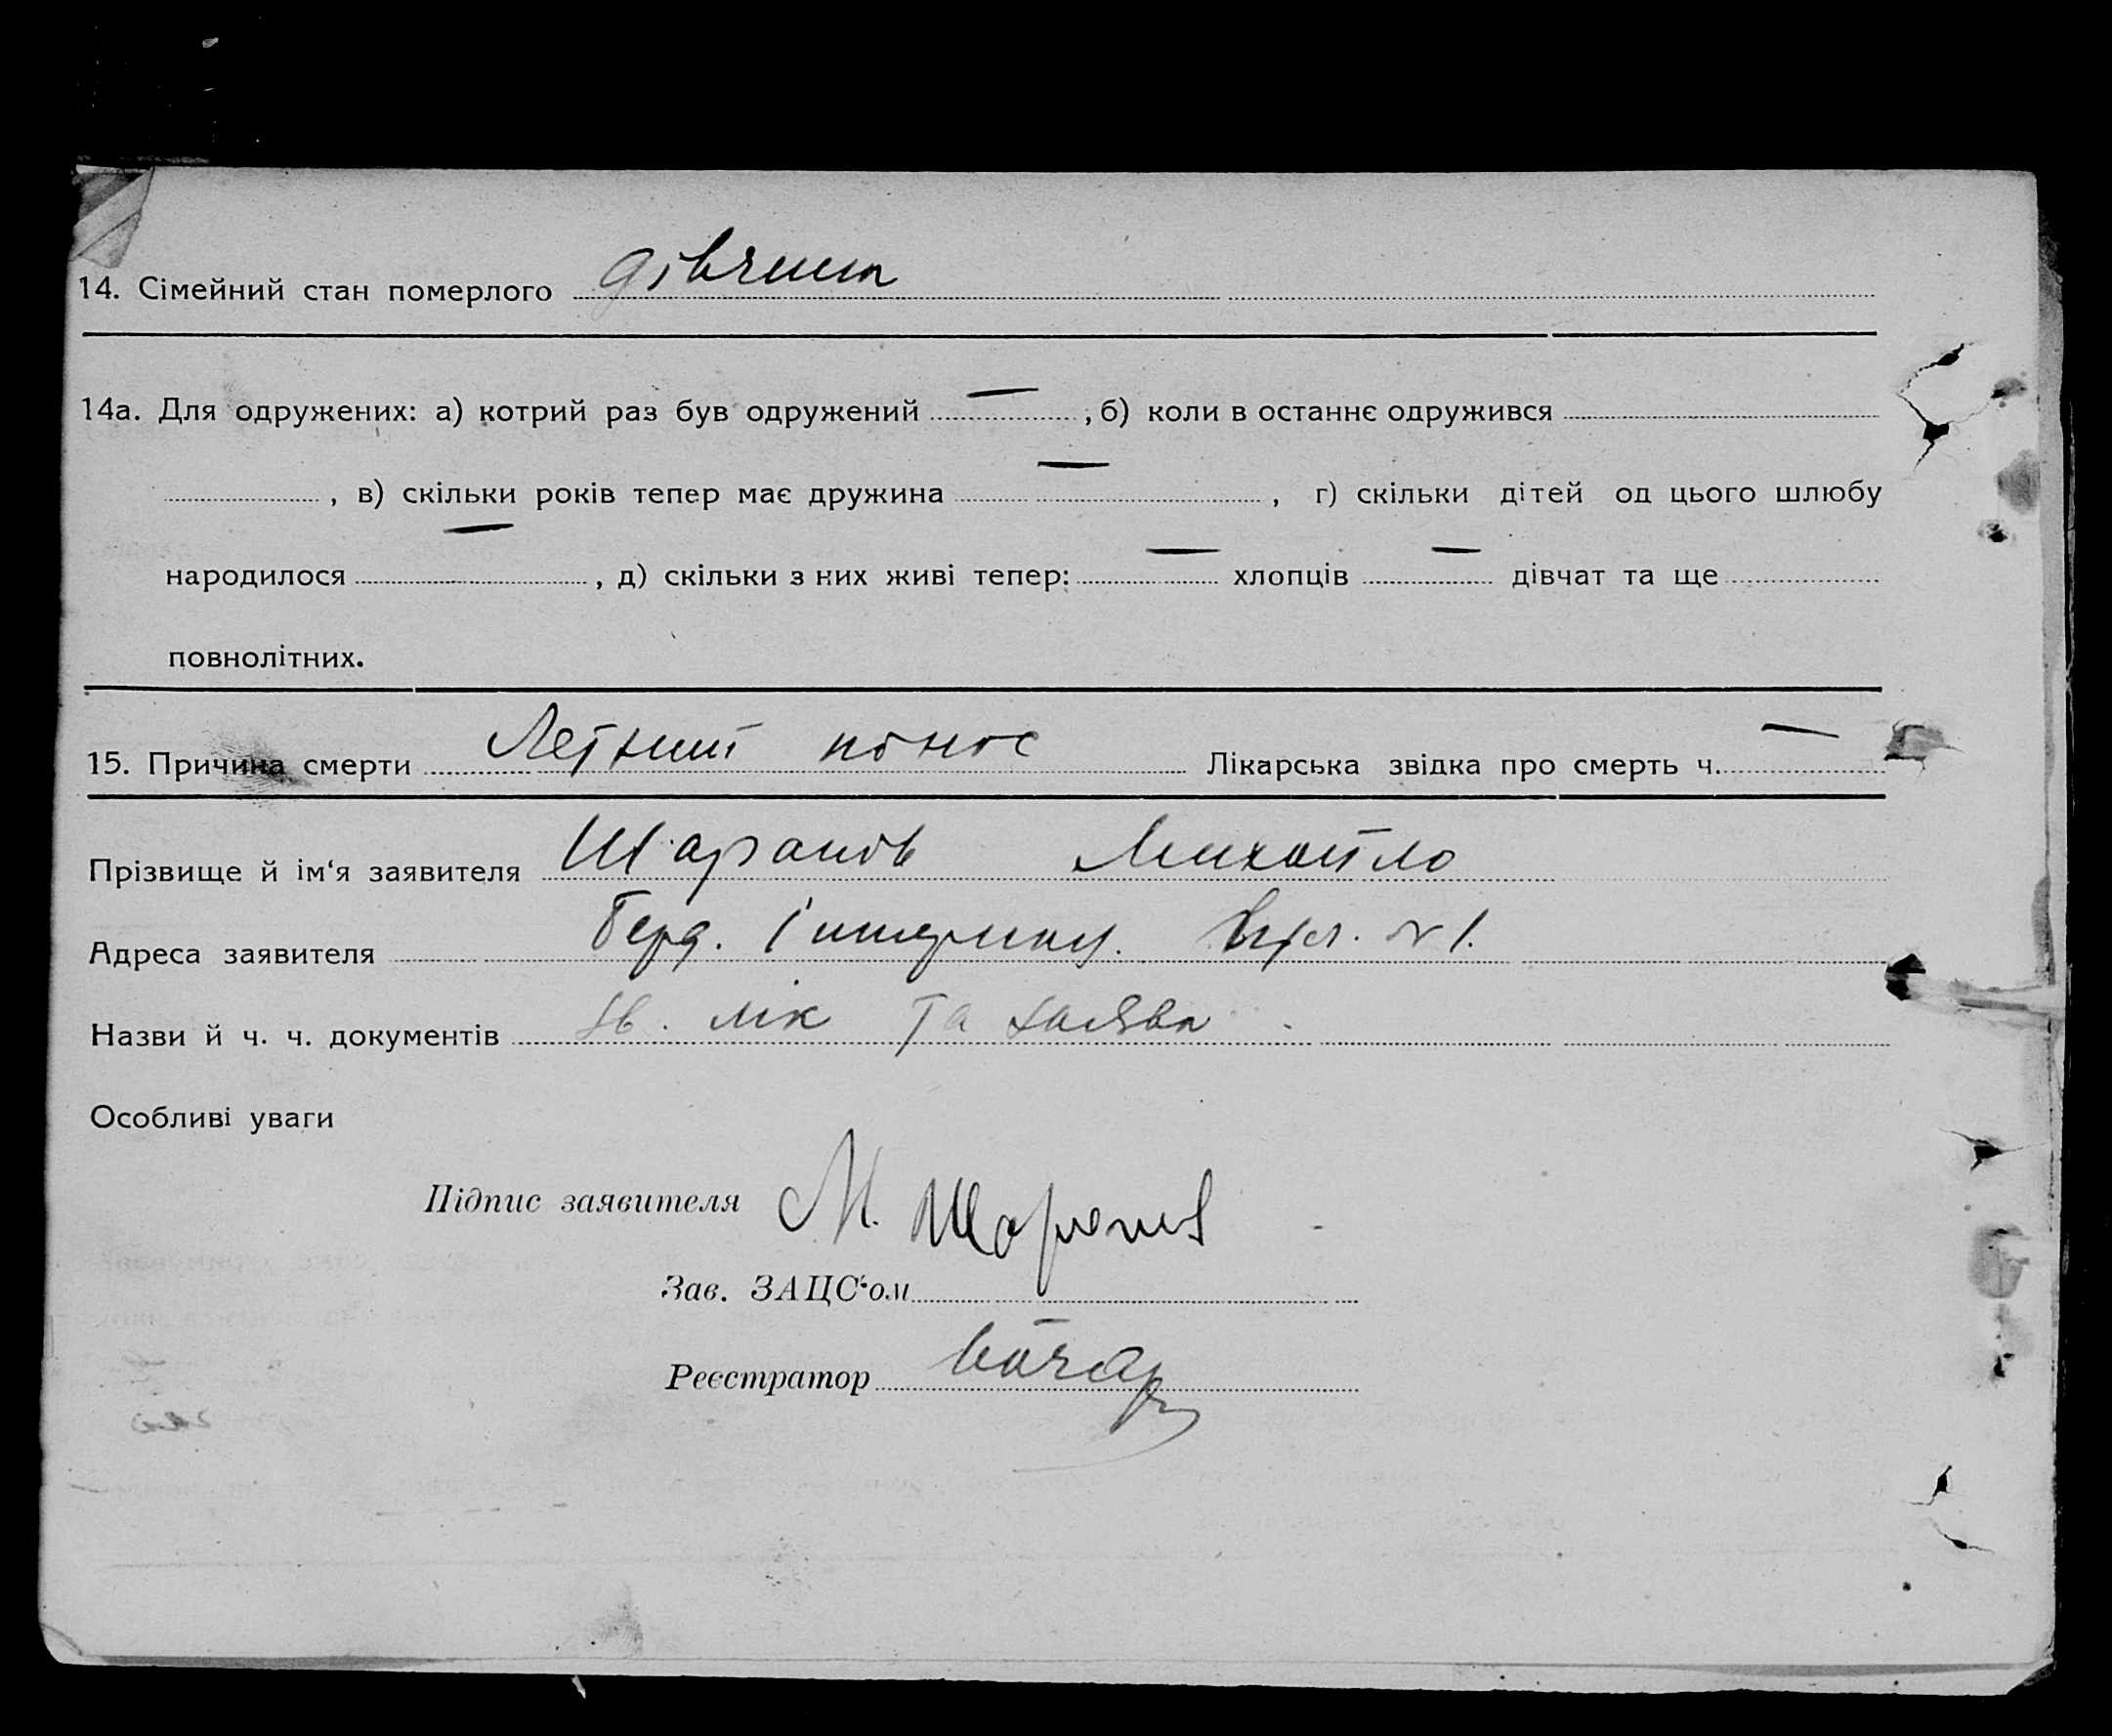 14. Сімейний стан померлого дівчина
14а. Для одружених: а) котрий раз був одружений — , б) коли в останнє одружився
, в) скільки років тепер має дружина — , г) скільки дітей од цього шлюбу
народилося — , д) скільки з них живі тепер: — хлопців — дівчат та ще
повнолітних.
15. Причина смерти Летний понос Лікарська звідка про смерть ч. —
Прізвище й ім‘я заявителя Шарапов Михайло
Адреса заявителя Берд. №1.
Назви й ч. ч. документів зв. лік та заява
Особливі уваги
Підпис заявителя М. Шарапов
Зав. ЗАЦС‘ом
Реєстратор